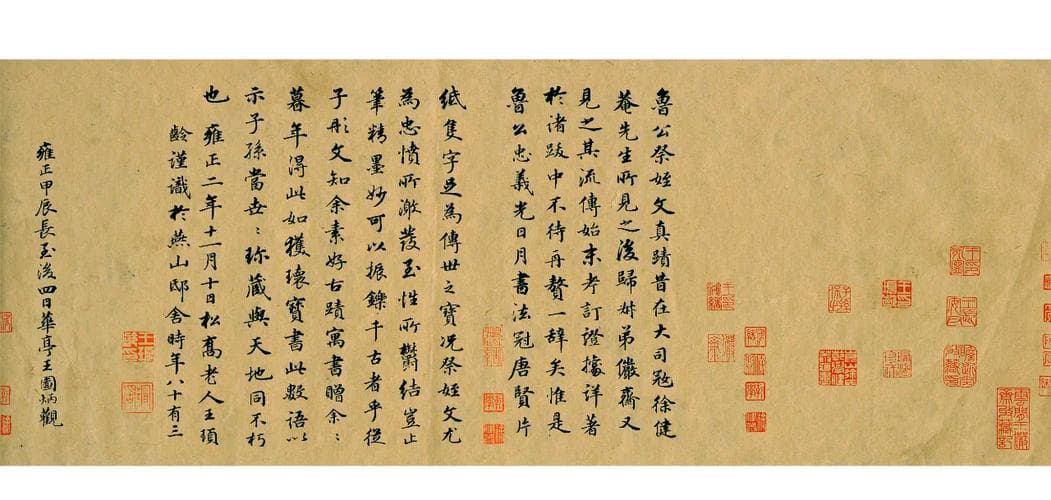 魯公祭姪文真蹟昔在大司寇徐健
菴先生所見之後歸弟儼齋又
見之其流傳始末考訂證據詳著
於諸跋中不待再贅一辭矣惟是
魯公忠義光日月書法冠唐賢片
紙隻字足為傳世之寶況祭姪文尤
為忠憤所激發至性所鬱結豈止
筆精墨妙可以振鑠千古者乎從
子彤文知余素好古蹟寓書贈余〻
暮年得此如獲瓌寶書此數語以
示子孫當世〻珎藏與天地同不朽
也雍正二年十一月十日松喬老人王頊
齡謹識於燕山邸舍時年八十有三
雍正甲辰長至後四日華亭王圖炳觀